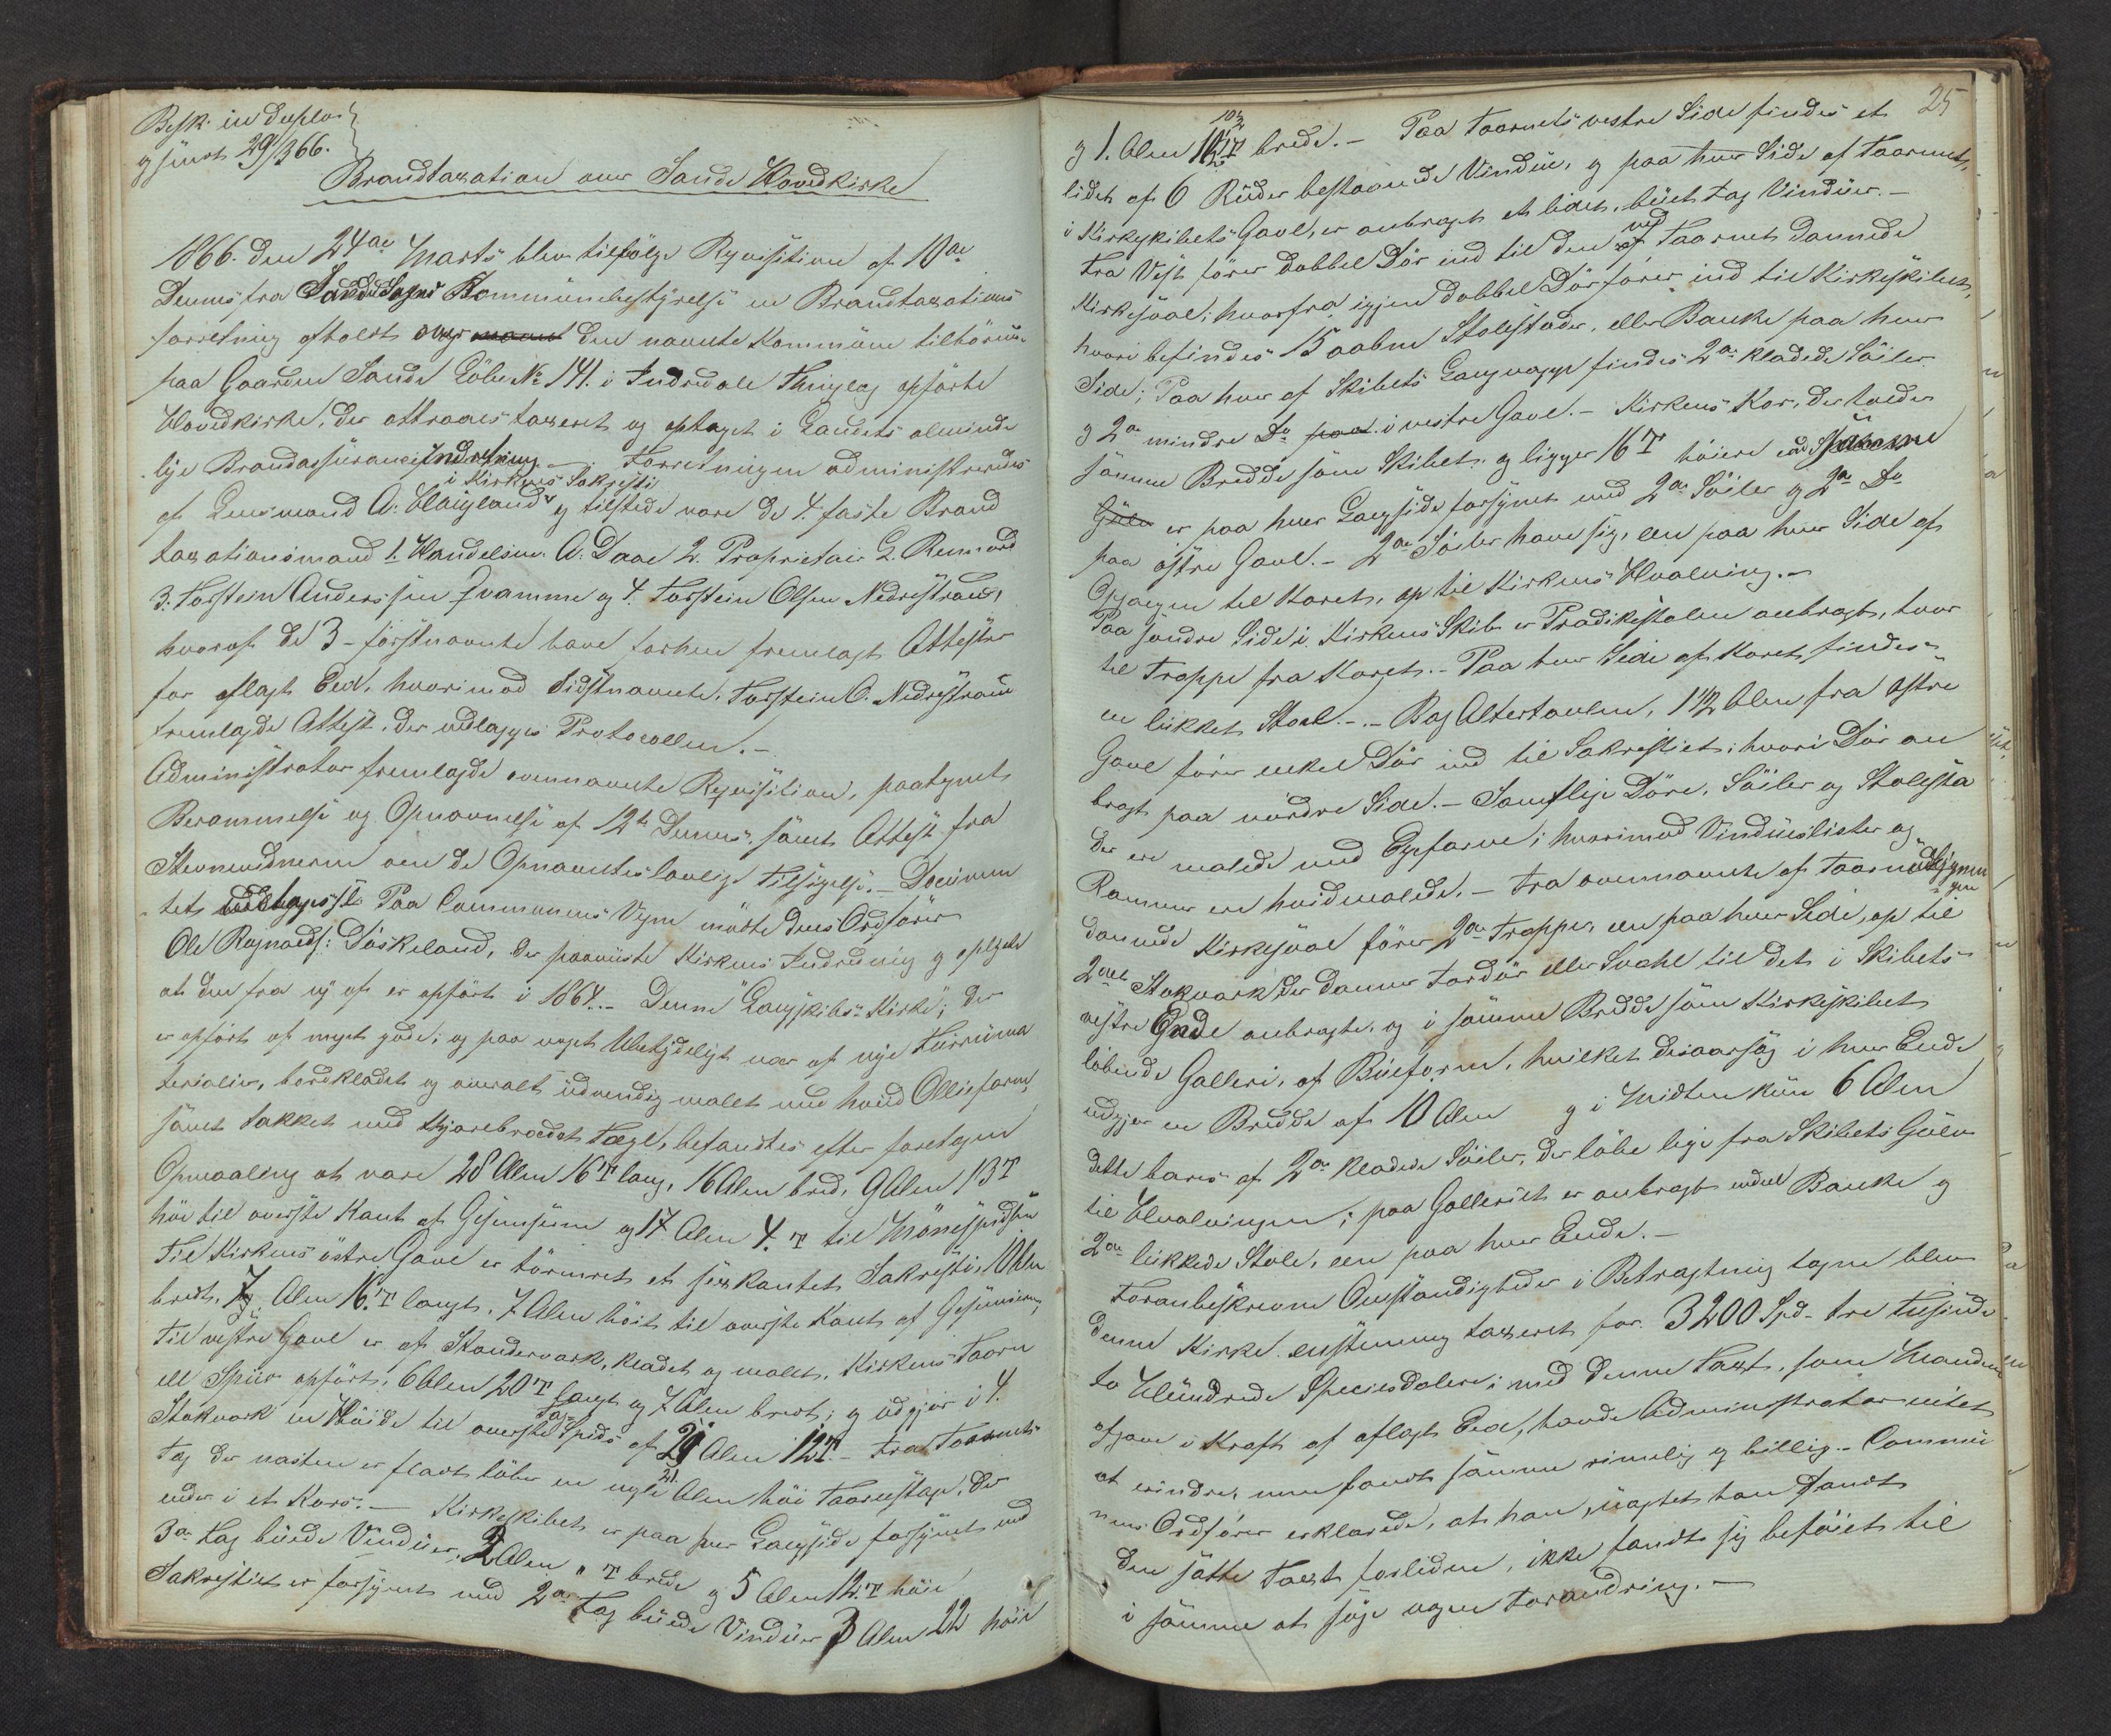 Besk. in duplo
og sendt 29/3 66.
Brandtaxation over Sande Hovedkirke
1866 den 24de Marts blev tilfølge Reqvisition af 10de
Dennes fra Sande Sogns Kommunebestyrelse en Brandtaxations
forretning afholdt over den nævnte Kommune tilhørende
paa Gaarden Sande Løbe No 141. i Indredale Thinglag opførte
Hovedkirke, der attraaes taxeret og optaget i Landets alminde
lige Brandassuranceindretning. – Forretningen administreredes
i Kirkens Sakristi
af Lensmand A. Høigland og tilstede vare de 4 faste Brand
taxationsmænd 1. Handelsm. A. Daae 2. Proprietair L. Rønnord
3. Torstein Anderssen Qvamme og 4. Torstein Olsen Nedrestrand,
hvoraf de 3 førstnævnte have forhen fremlagt Attester
for aflagt Eed, hvorimod Sidstnævnte, Torstein O. Nedrestrand
fremlagde Attest, der vedlægges Protocollen. –
Administrator fremlagde ovennævnte Reqvisition, paategnet
Berammelse og Opnævnelse af 12te Dennes, samt Attest fra
Stevnevidnerne om de Opnævntes lovlige Tilsigelse. – Documen
tet vedlægges. Paa Communens Vegne mødte dens Ordfører
Ole Ragnvalds: Døskeland, der paaviste Kirkens Indredning og oplyste
at den fra ny af er opført i 1864. – Denne "Langskibs-Kirke", der
er opført af meget gode, og paa noget Ubetydeligt nær af nye Furuma
terialier, bordklædet og overalt udvendig malet med hvid Olliefarve,
samt takket med skjærebrædet Tægl, befandtes efter foretagen
Opmaaling at være 28 Alen 16 T lang, 16 Alen bred, 9 Alen 13 T
høi til øverste Kant af Gesimsen og 17 Alen 4. T til Mønespidsen
Til Kirkens østre Gavl er tømret et sexkantet Sakristi, 10 Alen
bredt, 7 Alen 16. T langt, 7 Alen høit til øverste Kant af Gesimsen,
Til vestre Gavl er af Standerværk, klædet og malet, Kirkens Taarn
ell Spiir opført, 6 Alen 20 T langt og 7 Alen bredt; og udgjør i 4.
Tag-
Stokværk en Høide til øverste Spids af 29 Alen 12 T. – Fra Taarnets
Tag der næsten er fladt løber en 2 1/2 Alen høi Taarnstage, der
ender i et Kors. – Kirkeskibet er paa hver Langside forsynet med
3de Fag buede Vinduer, 2 Alen " T brede og 5 Alen 12. T høie
Sakristiet er forsynet med 2de Fag buede Vinduer 3 Alen 22 høie
25
og 1. Alen 10 1/2 T brede. – Paa Taarnets vestre Side findes et
lidet af 6 Ruder bestaaende Vindue, og paa hver Side af Taarnet,
i Kirkeskibets Gavl, er anbragt et lidet, buet Fag Vinduer. –
ved
Fra Vest fører dobbel Dør ind til den af Taarnet dannede
Kirkesval; hvorfra igjen dobbel Dør fører ind til Kirkeskibet,
hvori befindes 15 aabne Stolestader, eller Bænke paa hver
Side; Paa hver af Skibets Langvægge findes 2de klædede Søiler
og 2de mindre Do paa i vestre Gavl. – Kirkens Kor, der holder
samme Bredde som Skibet og ligger 16 T høiere end Skibets
Gulv er paa hver Langside forsynet med 2de Søiler og 2de Do
paa østre Gavl. – 2de Søiler have sig, een paa hver Side af
Opgangen til Koret, op til Kirkens Hvælving. –
Paa søndre Side i Kirkens Skib er Prædikestolen anbragt, hvor
til Trappe fra Koret. – Paa hver Side af Koret findes
en lukket Stoel. – Bag Altertavlen, 1 1/2 Alen fra østre
Gavl fører enkel Dør ind til Sakristiet; hvori Dør an
bragt paa nordre Side. – Samtlige Døre, Søiler og Stolesta
der ere malede med Egefarve; hvorimod Vindueslister og
Rammer ere hvidmalede. – Fra ovennævnte af Taarnets
dannede Kirkesval fører 2de Trapper, een paa hver Side, op til
2det Stokværk, der danner Fordør eller Svahl til det i Skibets
vestre Ende anbragte, og i samme Bredde som Kirkeskibet
løbende Galleri, af Bueform, hvilket desaarsag i hver Ende
udgjør en Bredde af 10 Alen og i Midten kun 6 Alen
dette bæres af 2de klædede Søiler, der løbe lige fra Skibets Gulv
til Hvælvingen; paa Galleriet er anbragt endeel Bænke og
2de lukkede Stole, een paa hver Ende. –
Foranbeskrevne Omstændigheder i Betragtning tagne blev
denne Kirke enstemmig taxeret for 3200 Spd – tre Tusinde
to Hundrede Speciesdaler; mod denne Taxt, som Mændene
afgave i Kraft af aflagt Eed, havde Administrator intet
at erindre, men fandt samme rimelig og billig. – Commu
nens Ordfører erklærede, at han, uagtet han fandt
den satte Taxt forliden, ikke fandt sig beføiet til
i samme at søge nogen Forandring. –